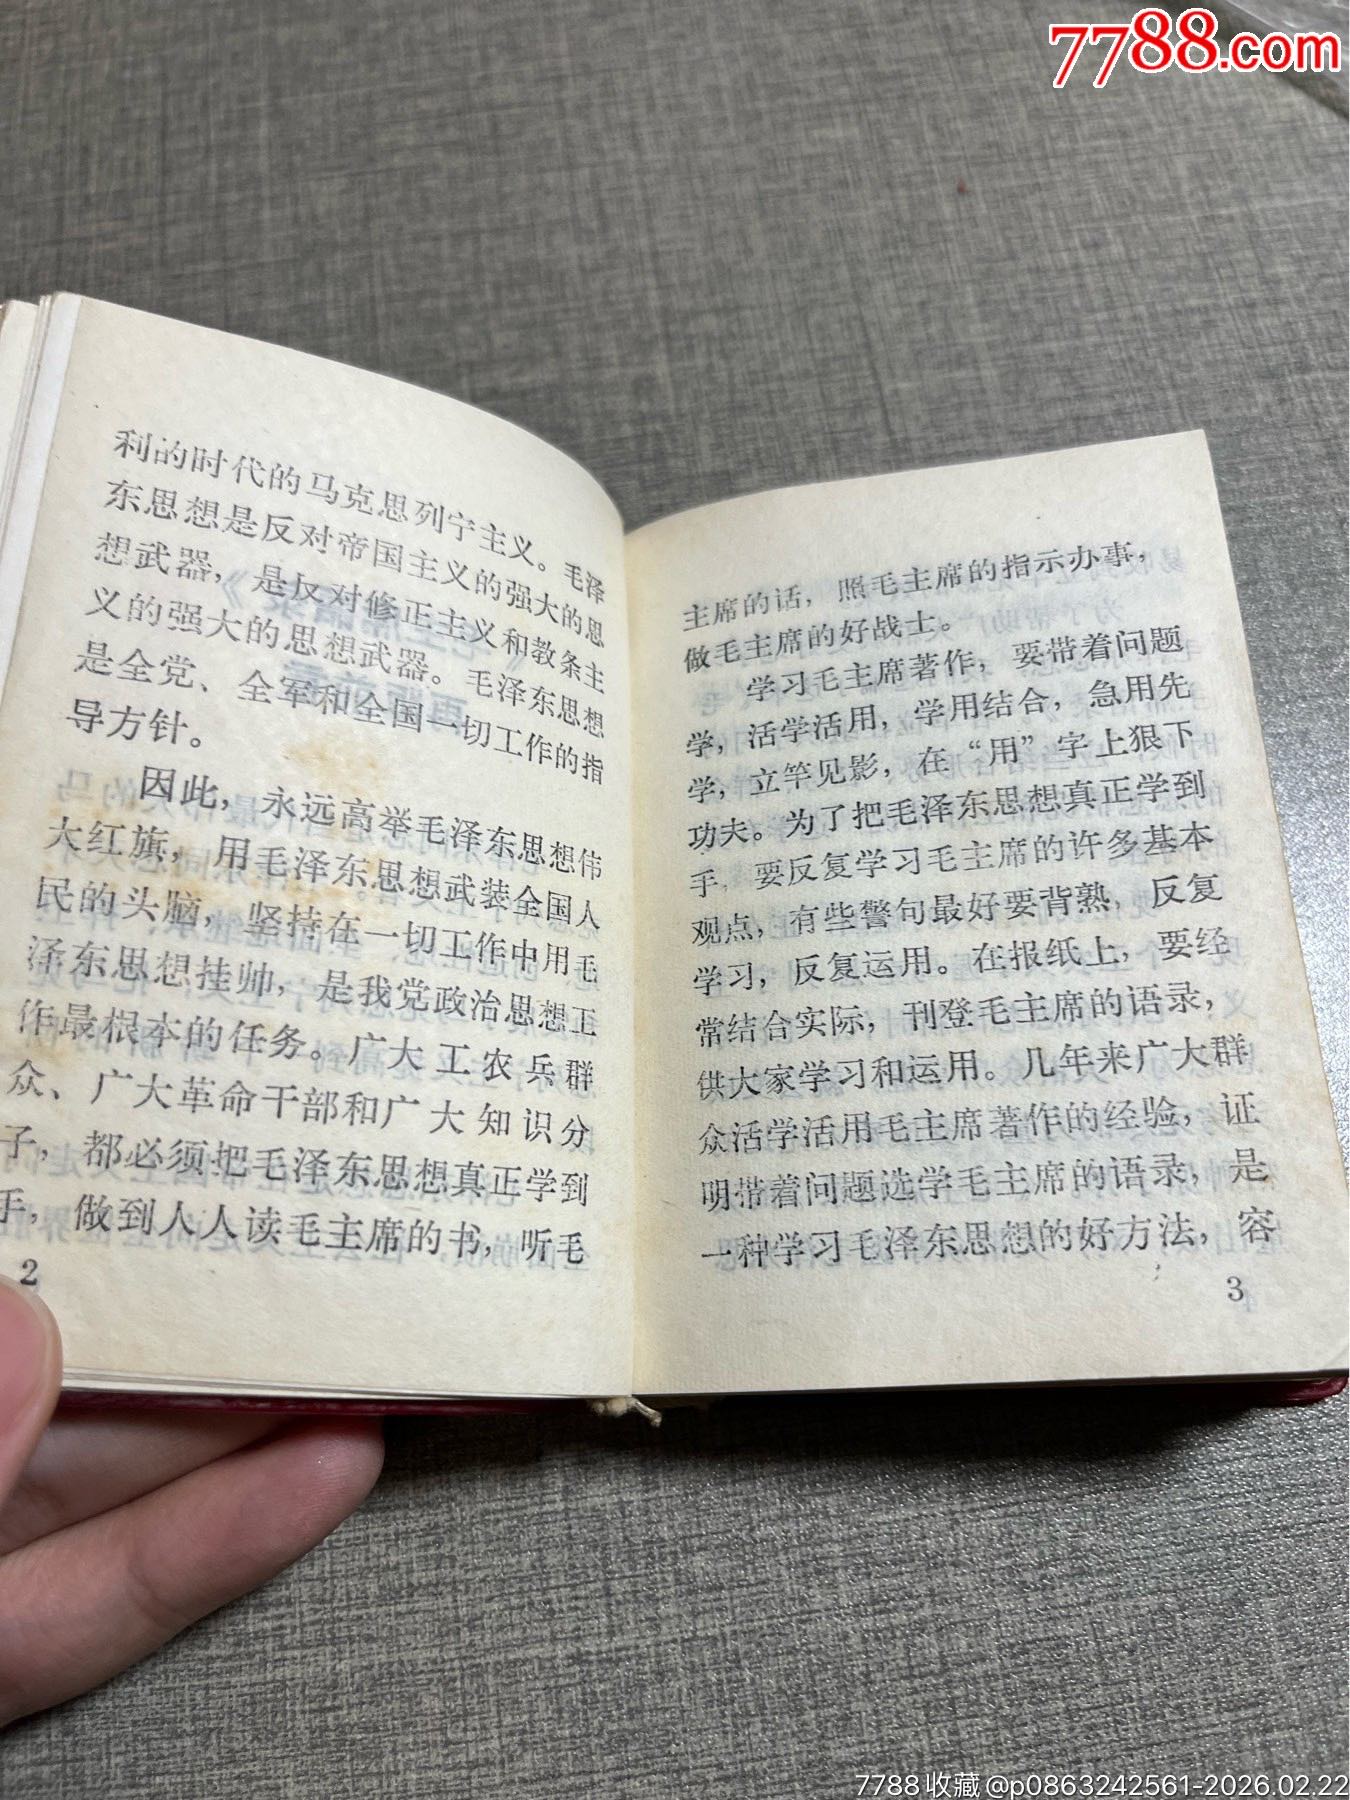 7788.com
利的时代的马克思列宁主义。毛泽
东思想是反对帝国主义的强大的思
想武器，是反对修正主义和教条主
义的强大的思想武器。毛泽东思想
是全党、全军和全国一切工作的指
导方针。
因此，永远高举毛泽东思想伟
大红旗，用毛泽东思想武装全国人
民的头脑，坚持在一切工作中用毛
泽东思想挂帅，是我党政治思想工
作最根本的任务。广大工农兵群
众、广大革命干部和广大知识分
子，都必须把毛泽东思想真正学到
手，做到人人读毛主席的书，听毛
2
主席的话，照毛主席的指示办事，
做毛主席的好战士。
学习毛主席著作，要带着问题
学，活学活用，学用结合，急用先
学，立竿见影，在“用”字上狠下
功夫。为了把毛泽东思想真正学到
手，要反复学习毛主席的许多基本
观点，有些警句最好要背熟，反复
学习，反复运用。在报纸上，要经
常结合实际，刊登毛主席的语录，
供大家学习和运用。几年来广大群
众活学活用毛主席著作的经验，证
明带着问题选学毛主席的语录，是
一种学习毛泽东思想的好方法，容
3
7788收藏@p0863242561-2026.02.22